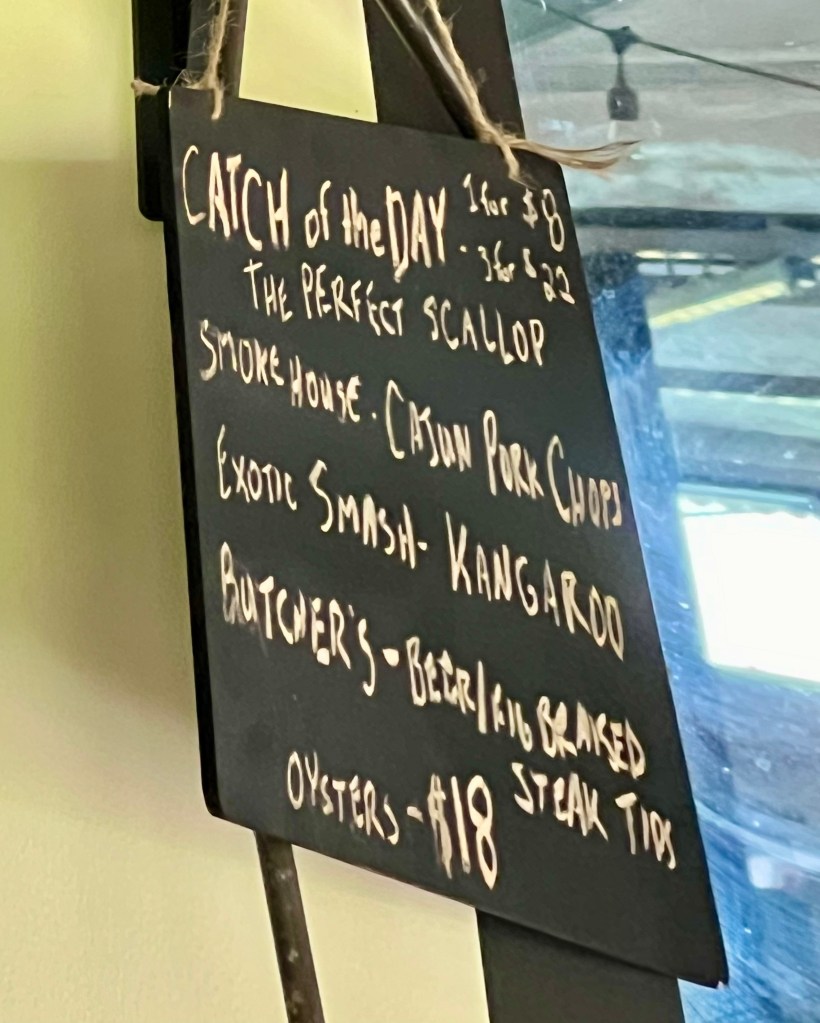 CATCH of the DAY - 1 for $8
3 for $22
THE PERFECT SCALLOP
SMOKEHOUSE - CAJUN PORK CHOPS
EXOTIC SMASH - KANGAROO
BUTCHER'S - BEER/FIG BRAISED
STEAK TIPS
OYSTERS - $18